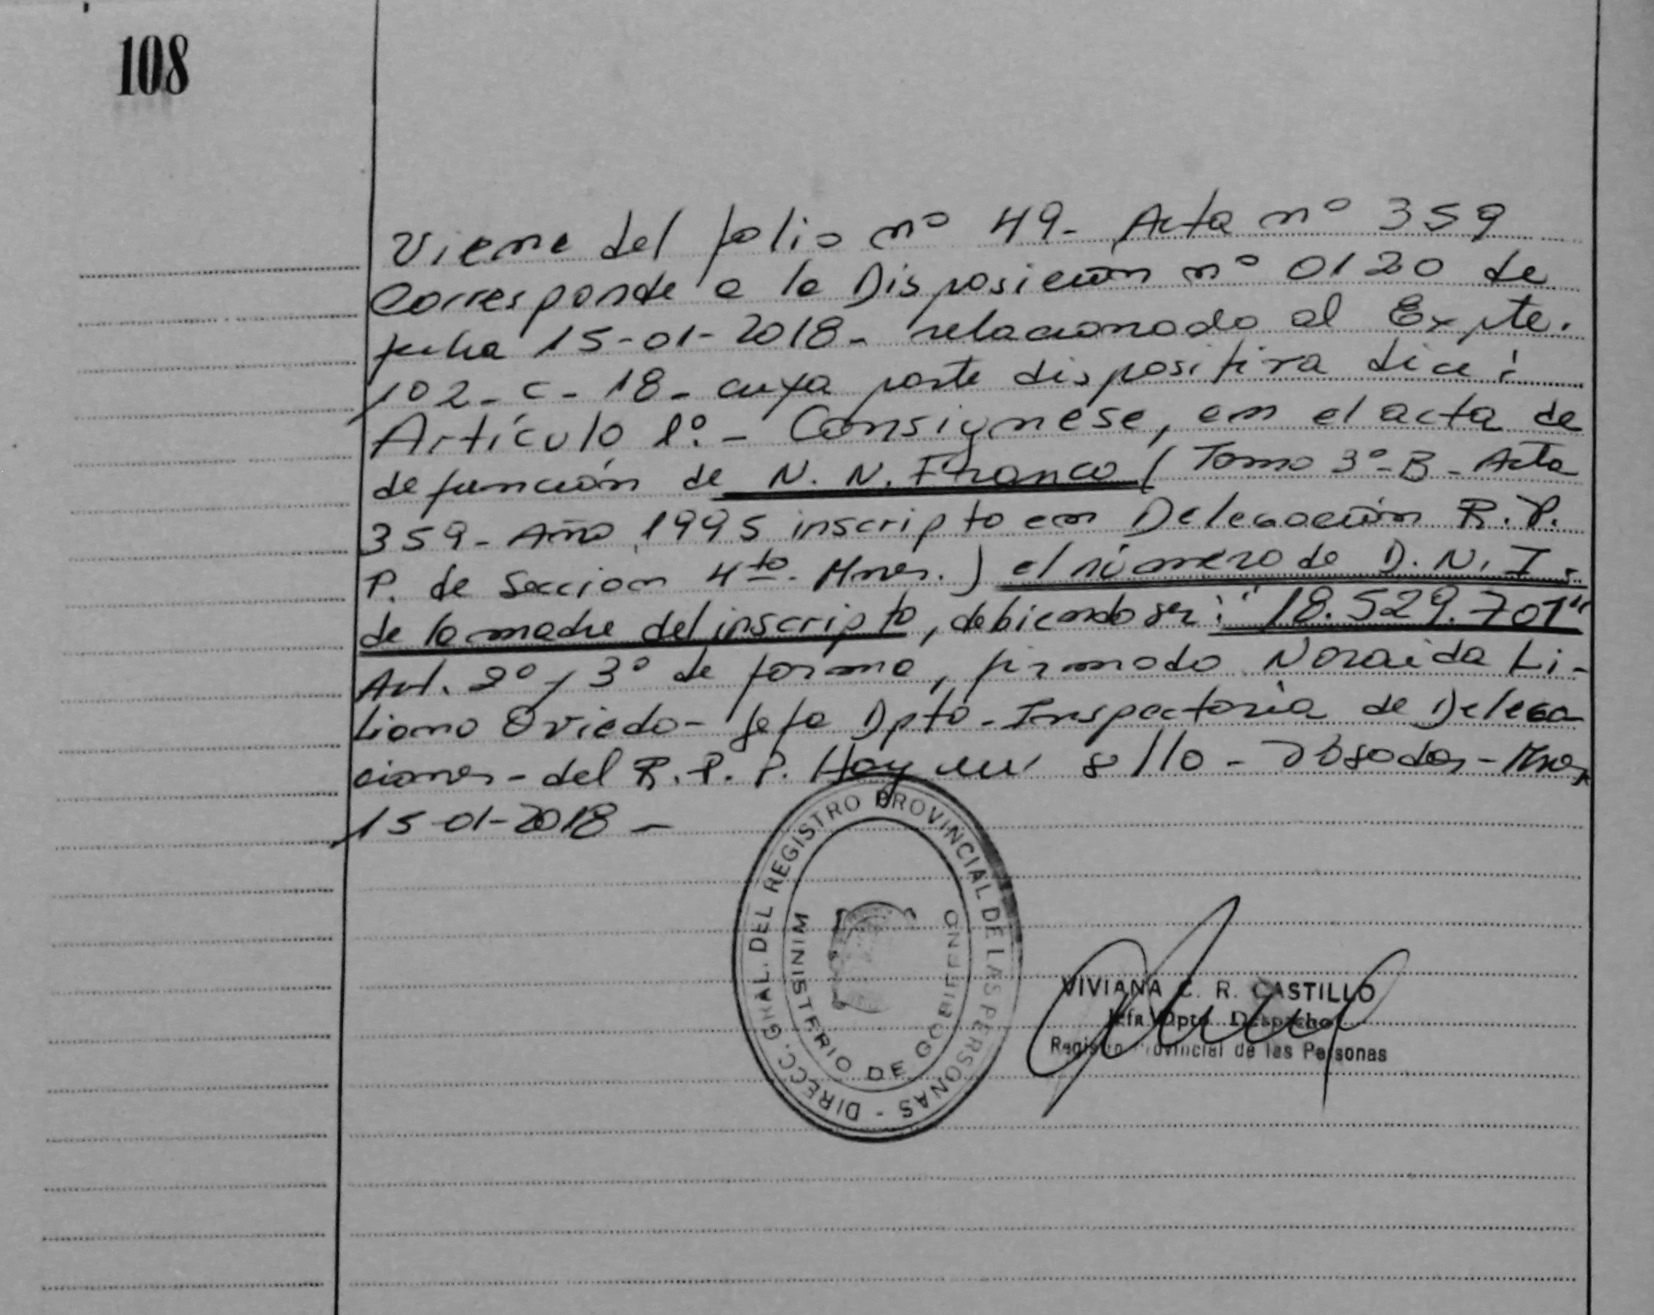 108
Viene del folio nº 49- Acta nº 359
Corresponde a la Disposición nº 0120 de
fecha 15-01-2018- relacionado al Expte.
102-C-18- cuya parte dispositiva dice:
Artículo 1º.- Consignese, en el acta de
defunción de N. N. Franco (Tomo 3º-B-Acta
359- Año 1995 inscripto en Delegación R.P.
P. de Seccion 4ta. Mnes.) el número de D.N.I.
de la madre del inscripto, debiendo ser: "18.529.701"
Art. 2º y 3º de forma, firmado Noraida Li-
liana Oviedo- Jefa Dpto- Inspectoria de Delega
ciones- del R.P.P. Hay un sello - Posadas- Mnes
15-01-2018-
DIRECC. GRAL. DEL REGISTRO PROVINCIAL DE LAS PERSONAS -
MINISTERIO DE GOBIERNO
VIVIANA C. R. CASTILLO
Jefa Dpto. Despacho
Registro Provincial de las Personas